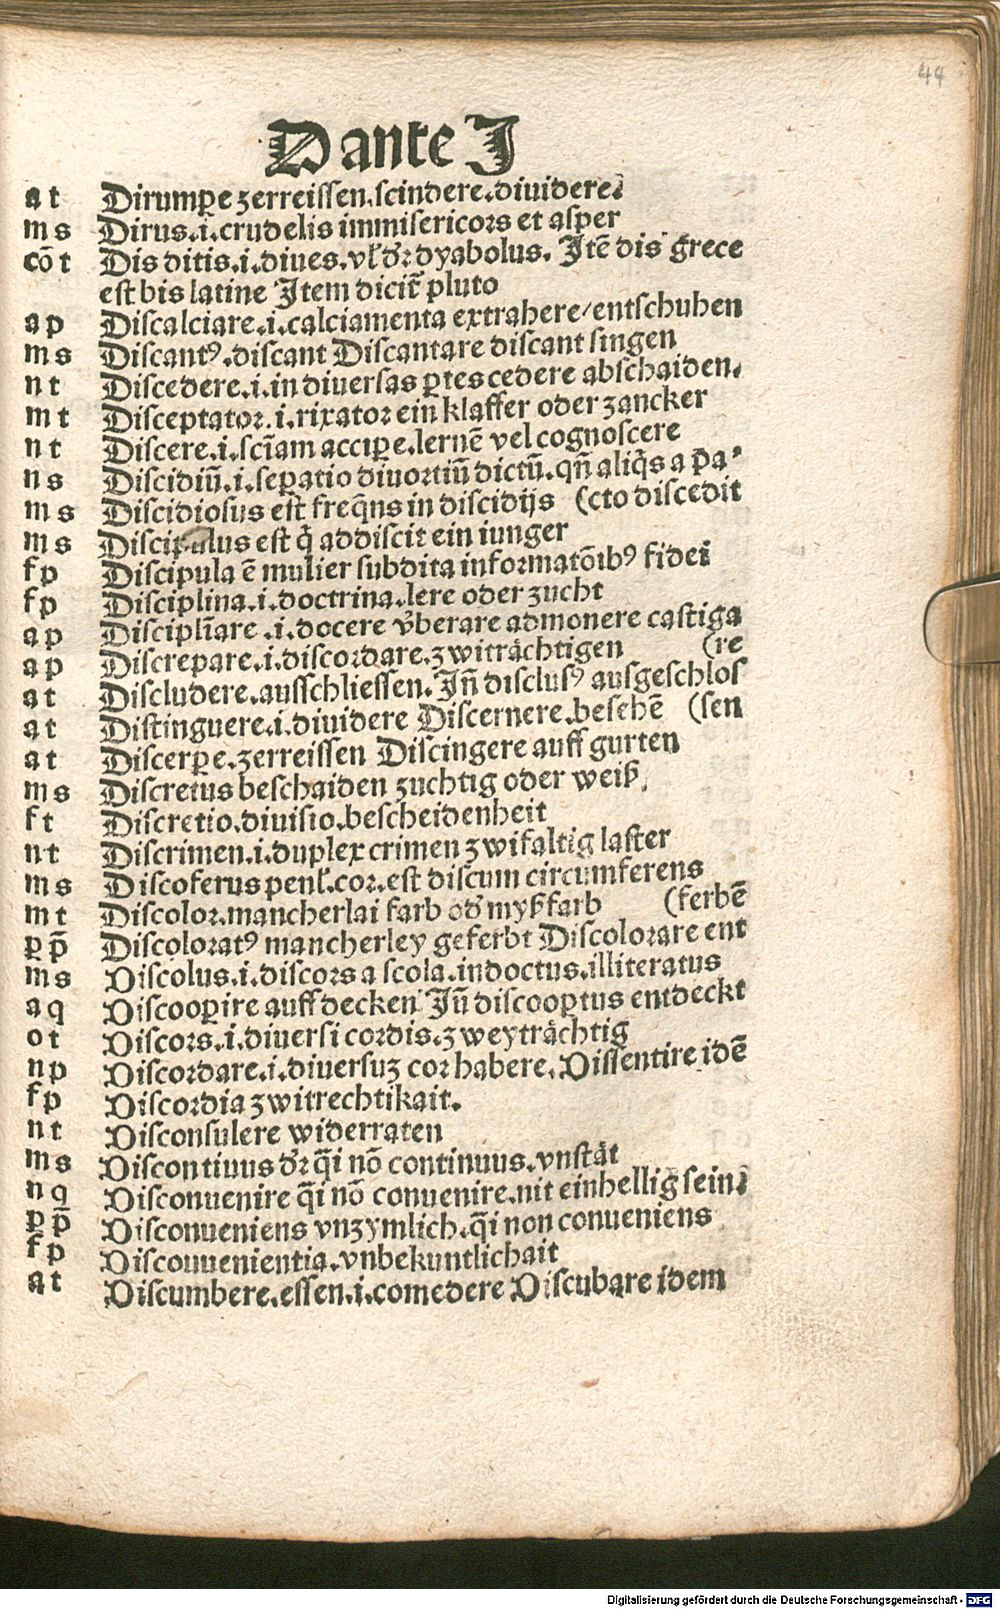 44
Dante I
at Dirumꝑe zerreissen.scindere.diuidere.
ms Dirus.i.crudelis immisericors et asper
cõt Dis ditis.i.diues.vľ dꝛ̃ dyabolus. Itẽ dis grece
est bis latine Item dicit̃ pluto
ap Discalciare.i.calciamenta extrahere/entschuhen
ms Discantꝰ.discant Discantare discant singen
nt Discedere.i.in diuersas ꝑtes cedere abschaiden.
mt Disceptator.i.rixator ein klaffer oder zancker
nt Discere.i.sciam̃ acciꝑe.lernẽ vel cognoscere
ns Discidiũ.i.seꝑatio diuortiũ dictũ.qñ aliq̃s a pa-
ms Discidiosus est freq̃ns in discidijs (cto discedit
ms Discipulus est q̃ addiscit ein iunger
fp Discipula ẽ mulier subdita informatõibꝰ fidei
fp Disciplina.i.doctrina.lere oder zucht
ap Discipliare.i.docere v̓berare admonere castiga
ap Discrepare.i.discordare.zwiträchtigen (re
at Discludere.ausschliessen.Iñ disclusꝰ ausgeschlos
at Distinguere.i.diuidere Discernere.besehẽ (sen
at Discerꝑe.zerreissen Discingere auff gurten
ms Discretus beschaiden zuchtig oder weiß.
ft Discretio.diuisio.bescheidenheit
nt Discrimen.i.duplex crimen zwifaltig laster
ms Discoferus penľ.cor.est discum circumferens
mt Discolor.mancherlai farb od̕ myßfarb (ferbẽ
ꝑp̃ Discoloratꝰ mancherley geferbt Discolorare ent
ms Discolus.i.discors a scola.indoctus.illiteratus
aq Discooꝑire auff decken Iñ discooꝑtus entdeckt
ot Discors.i.diuersi cordis.zweyträchtig
np Discordare.i.diuersuz cor habere.Dissentire idẽ
fp Discordia zwitrechtikait.
nt Disconsulere widerraten
ms Discontiuus dꝛ̃ q̃i nõ continuus.vnstät
nq Disconuenire q̃i nõ conuenire.nit einhellig sein.
ꝑp̃ Disconueniens vnzymlich.q̃i non conueniens
fp Disconuenientia.vnbekuntlichait
at Discumbere.essen.i.comedere Discubare idem
Digitalisierung gefördert durch die Deutsche Forschungsgemeinschaft - DFG